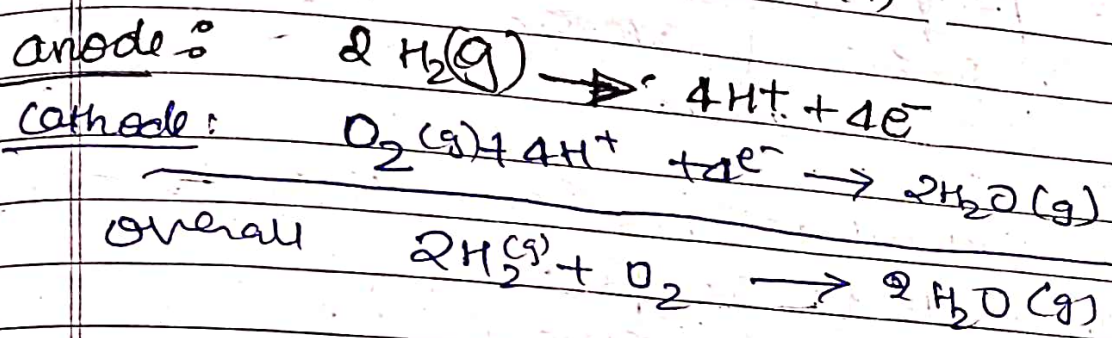 anode : 2 H₂(g) → 4H⁺ + 4e⁻
Cathode : O₂(g) + 4H⁺ + 4e⁻ → 2H₂O(g)
overall 2H₂(g) + O₂ → 2H₂O(g)